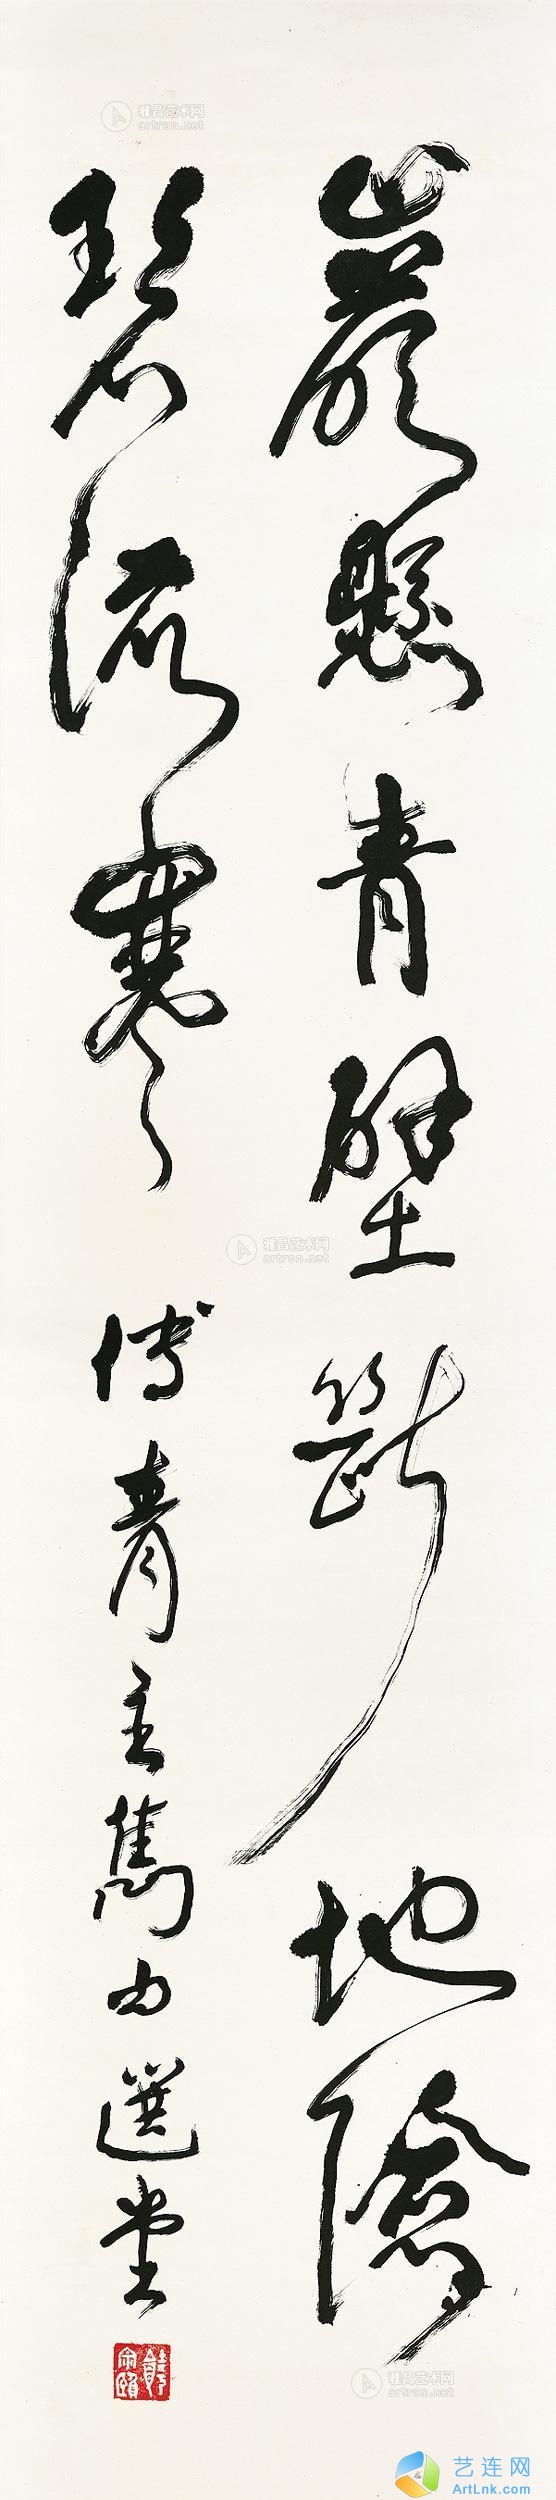 巖懸青壁斷地險
碧流寒
傅青主雋句選堂
饒宗頤
雅昌艺术网
artron.net
雅昌艺术网
artron.net
雅昌艺术网
artron.net
艺连网
ArtLnk.com